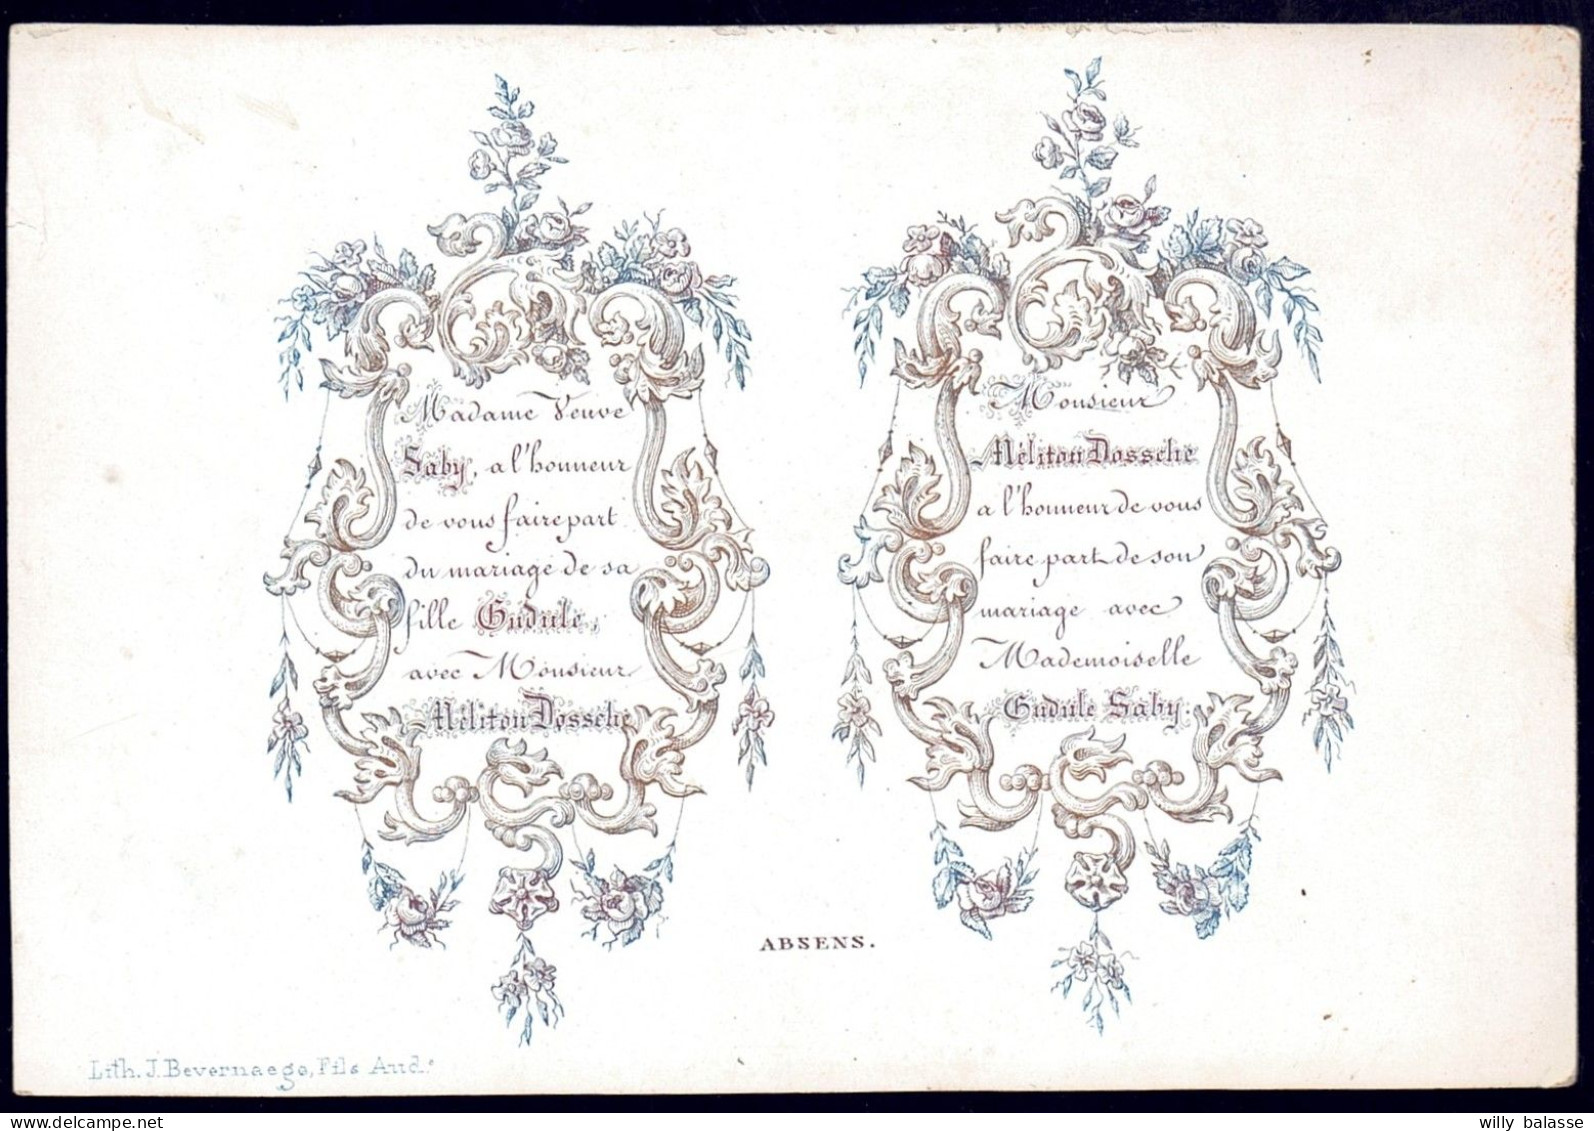 Madame Veuve
Saby, a l'honneur
de vous faire part
du mariage de sa
fille Gudule,
avec Monsieur
Méliton Dossche
Monsieur
Méliton Dossche
a l'honneur de vous
faire part de son
mariage avec
Mademoiselle
Gudule Saby.
ABSENS.
Lith. J. Bevernaege, Fils Aud.e
willy balasse